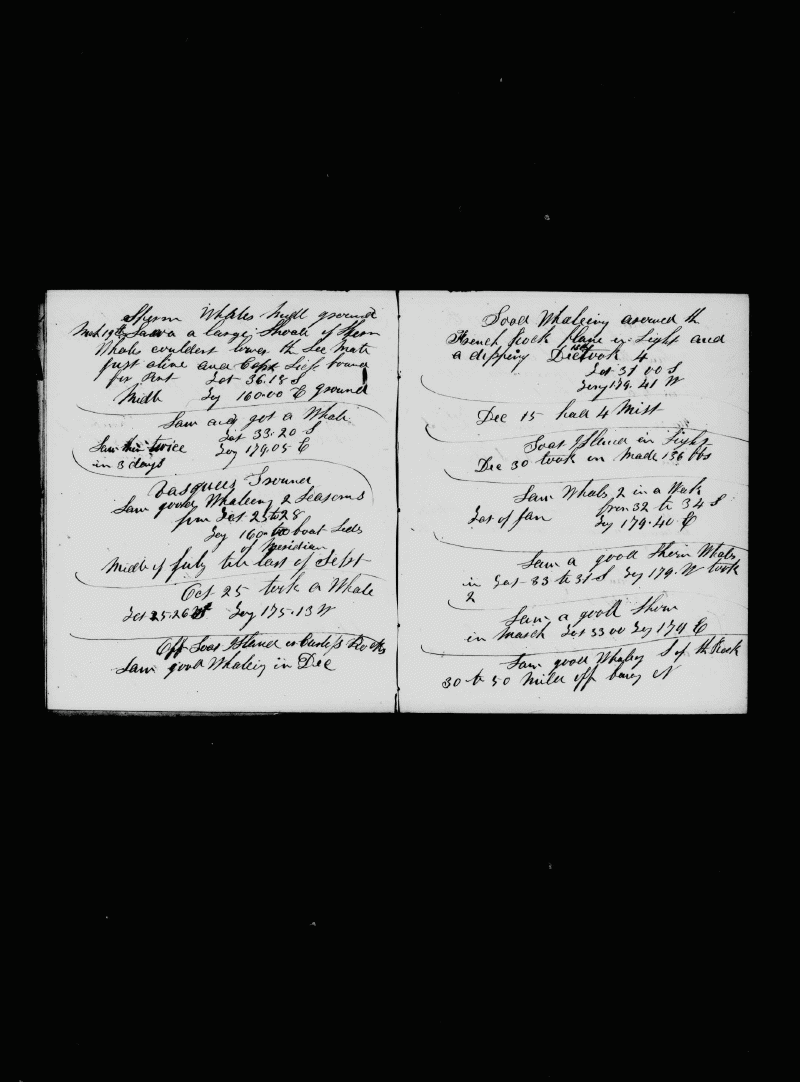 Sperm Whales Midl ground
Mch 19th Saw a large Shoal of Sperm
Whales couldent lower th See Mate
just alive and Capt Sick bound
for Port Lat 36.18 S
Midl Log 160.00 E ground
Saw and got a Whale
Lat 33.20 S
Saw twice Log 179.05 E
in 3 days
Vasques Ground
Saw good Whaleing 2 Seasons
from Lat 25 to 28
Log 160.00 boat Sids
of Meridian
Midle of July till last of Sept
Oct 25 took a Whale
Lat 25.26 Log 175.13 W
Off Island
Saw good Whaleing in Dec
Good Whaleing around th
French Rock Plane in Sight and
a dipping Dec took 4
Lat 31 00 S
Long 179.41 W
Dec 15 had 4 Mist
Island in Sight
Dec 30 took on Made 136 bbs
Saw Whals 2 in a Week
Last of Jan from 32 to 34 S
Log 179.40 E
Saw a good Sperm Whals
in Lat 33 to 31 S Log 179. W took
2
Saw a good Show
in March Lat 33 00 Log 174 E
Saw good Whaleg S of th Rock
30 to 50 Miles off N